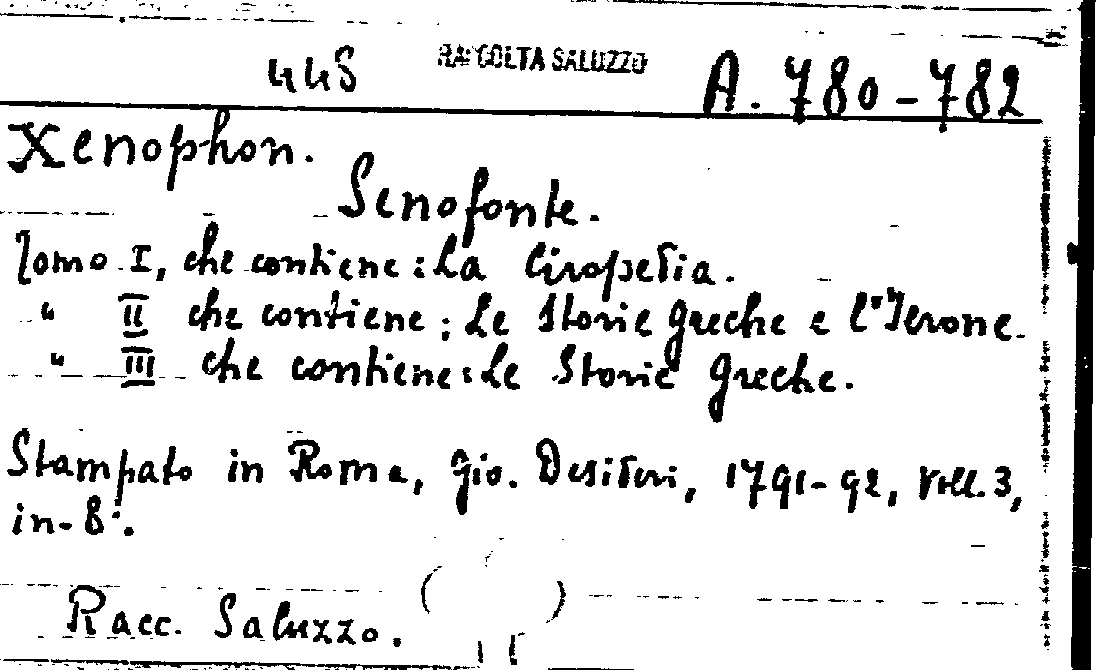 445 RACCOLTA SALUZZO A. 780-782
Xenophon.
Senofonte.
Tomo I, che contiene: La Ciropedia.
" II che contiene: Le Storie greche e l'Ierone.
" III che contiene: Le Storie greche.
Stampato in Roma, Gio. Desideri, 1791-92, voll. 3,
in-8°.
Racc. Saluzzo.